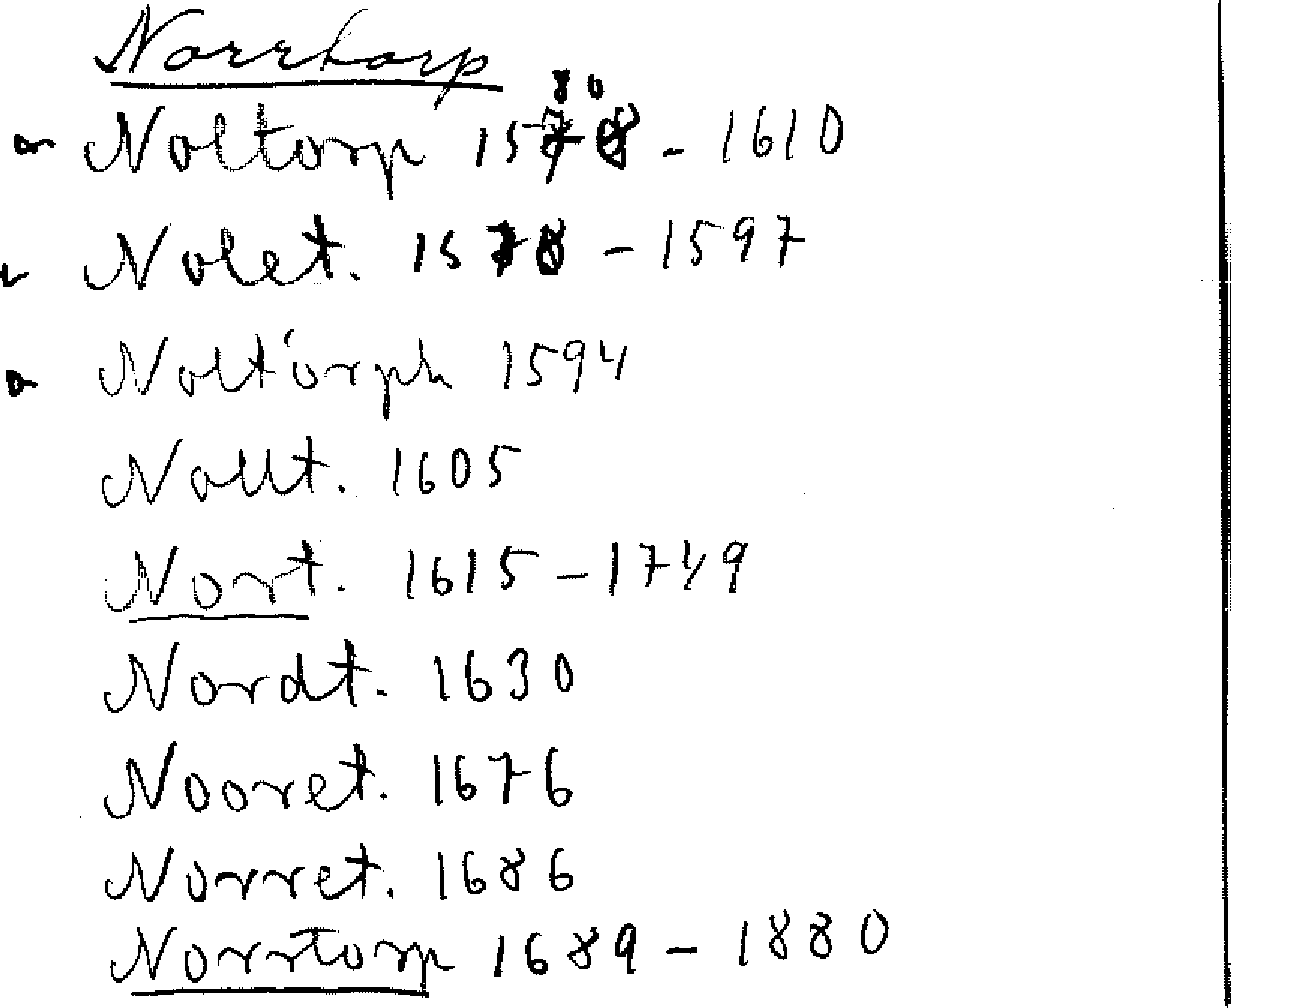 Norrtorp
Noltorp 1580 - 1610
Nolet. 1578 - 1597
Noltorph 1594
Nollt. 1605
Nort. 1615 - 1749
Nordt. 1630
Nooret. 1676
Norret. 1686
Norrtorp 1689 - 1880